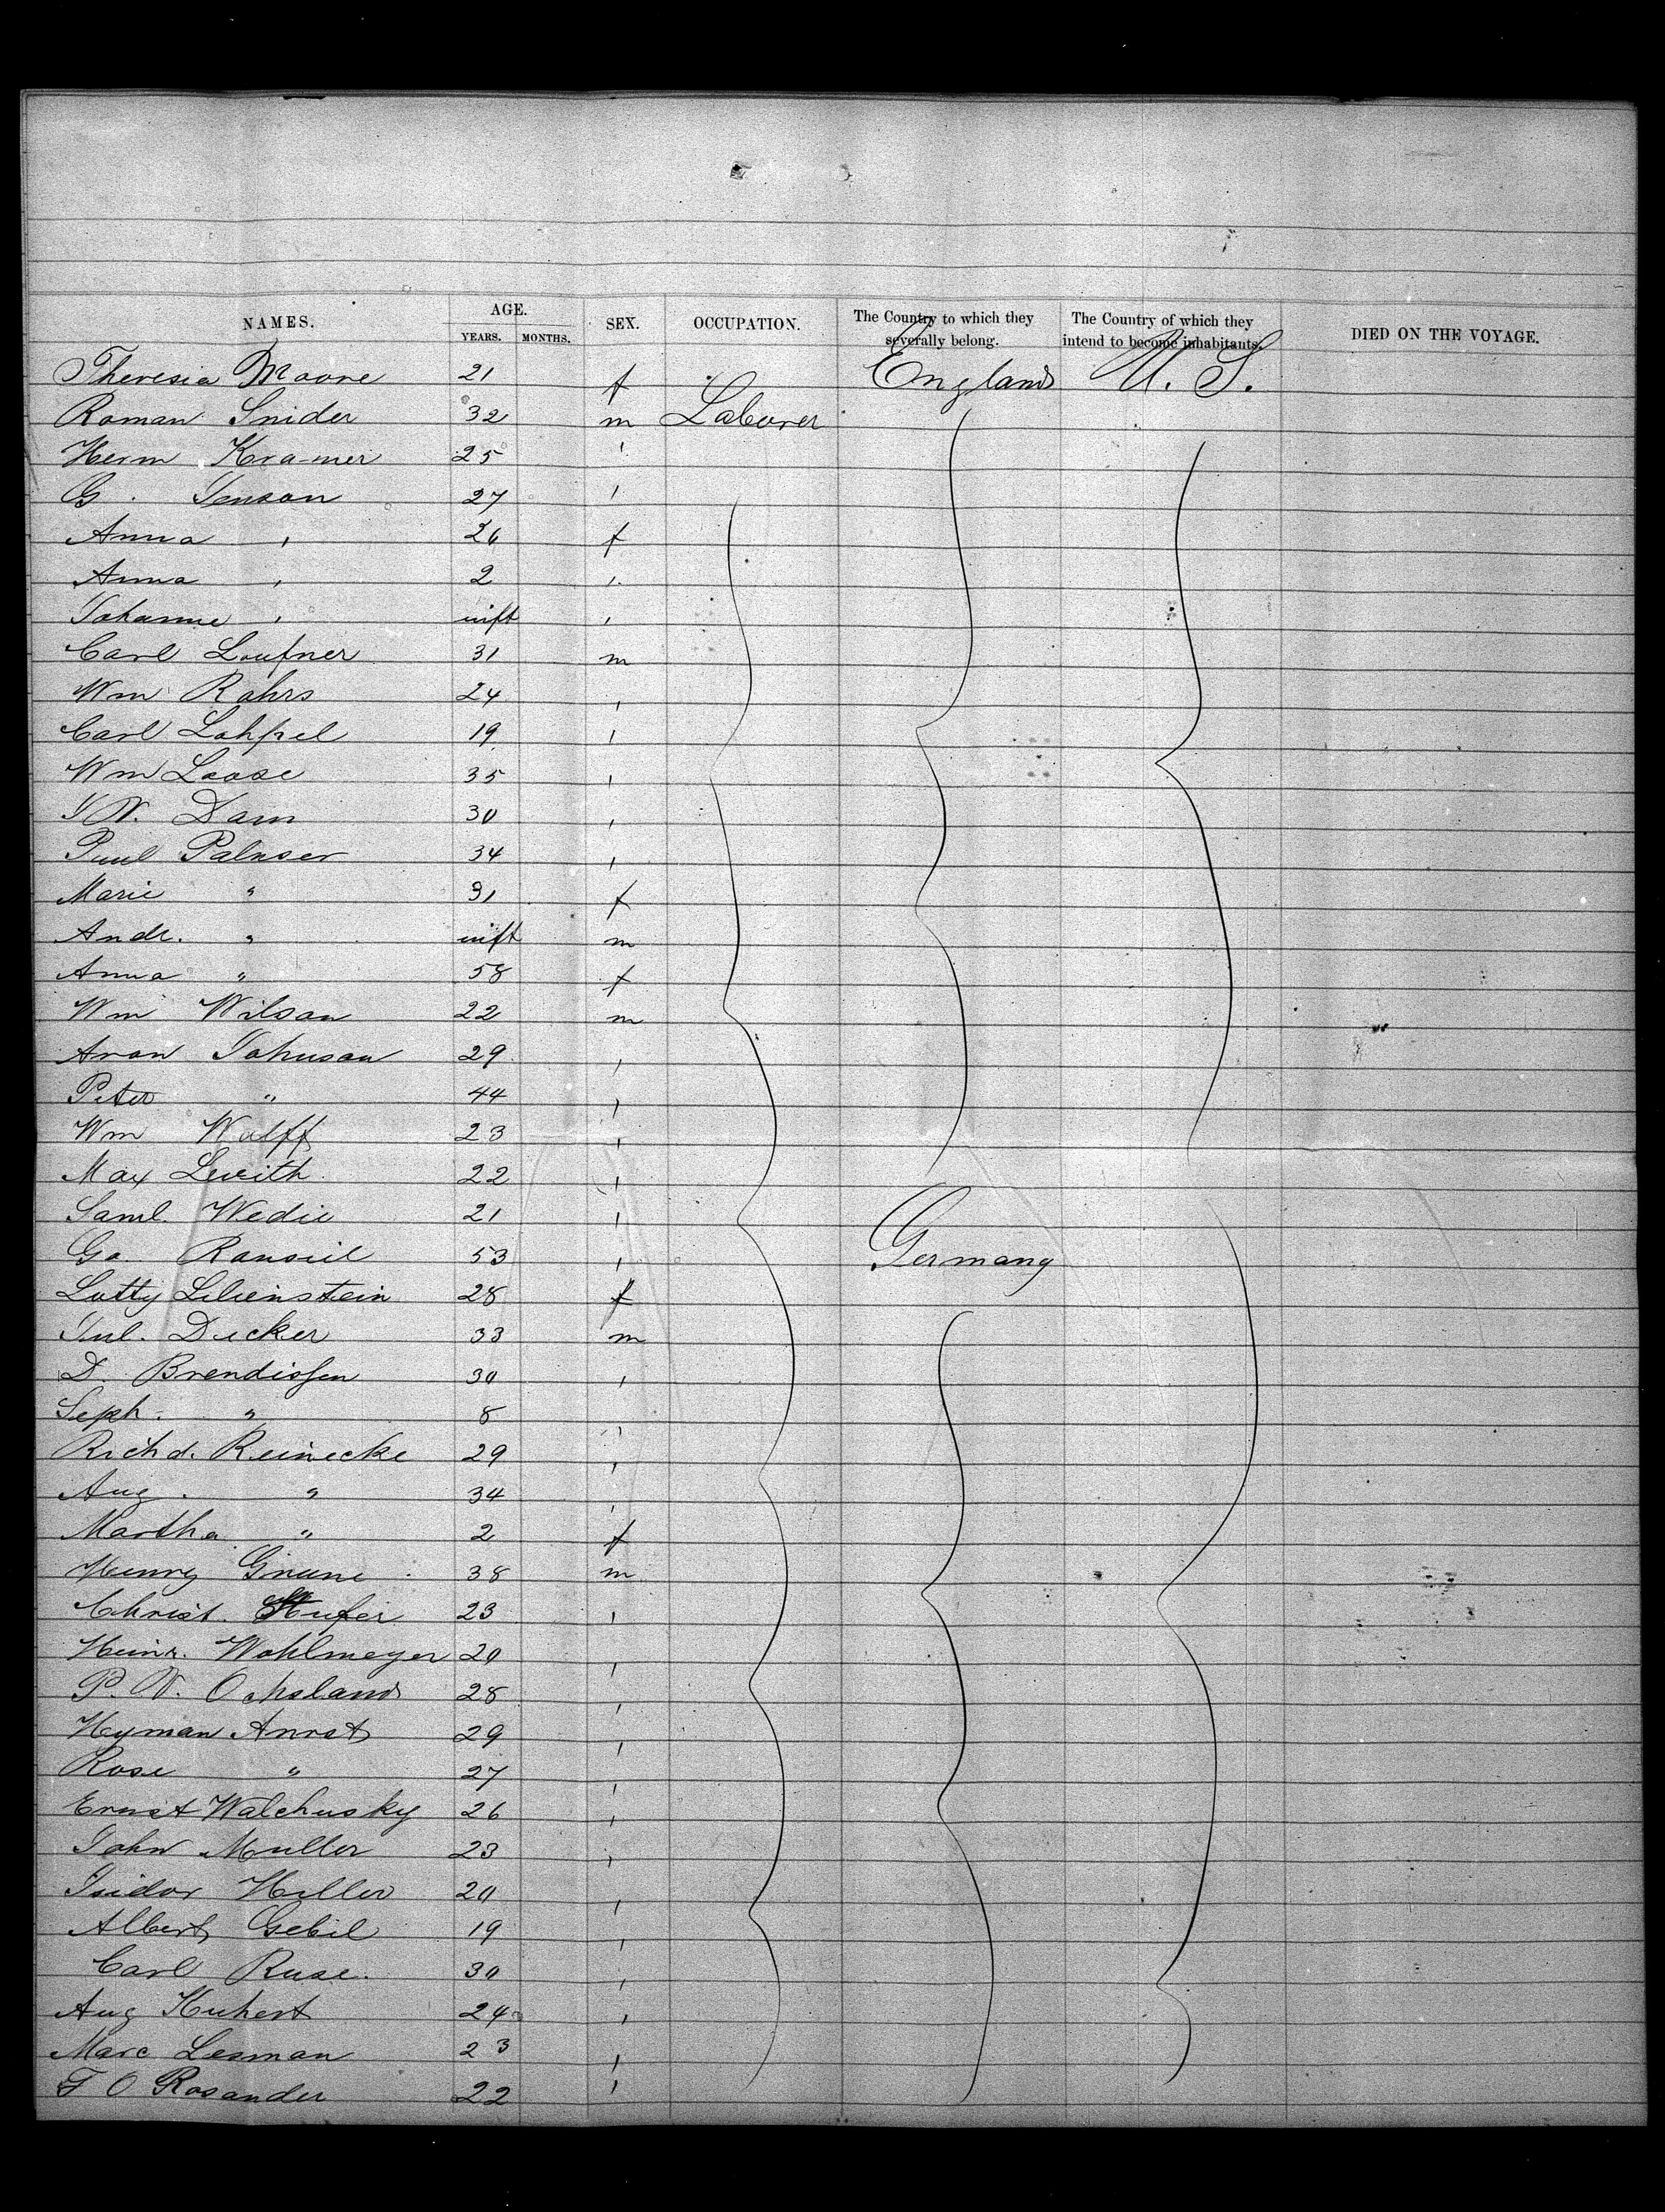 NAMES. AGE. SEX. OCCUPATION. The Country to which they severally belong. The Country of which they intend to become inhabitants. DIED ON THE VOYAGE.
YEARS. MONTHS.
Theresia Moore 21 f England U. S.
Roman Snider 32 m Laborer
Herm Kramer 25 "
G. Jenson 27 "
Anna " 26 f
Anna " 2 "
Johanne " inft "
Carl 31 m
Wm Rohrs 24 "
Carl 19 "
Wm Loose 35 "
J W. Dam 30 "
Paul Palmser 34 "
Marie " 31 f
Andr. " inft m
Anna " 58 f
Wm Wilson 22 m
Aron Johnson 29 "
Peter " 44 "
Wm Wolff 23 "
Max Levith 22 "
Saml. Wedie 21 "
Go. 53 " Germany
Lotty Lilienstein 28 f
Jul. Decker 33 m
D. Brendissen 30 "
Seph. " 8 "
Richd. Reinecke 29 "
Aug. " 34 "
Martha " 2 f
Henry Grune 38 m
Christ. Hufer 23 "
Heinr. Wohlmeyer 20 "
P. W. Ochsland 28 "
Hyman 29 "
Rose " 27 "
Ernst Walchusky 26 "
John Muller 23 "
Isidor Heller 20 "
Albert Gebil 19 "
Carl Ruse. 30 "
Aug Kuhert 24 "
Marc Lesman 23 "
F O Rosander 22 "